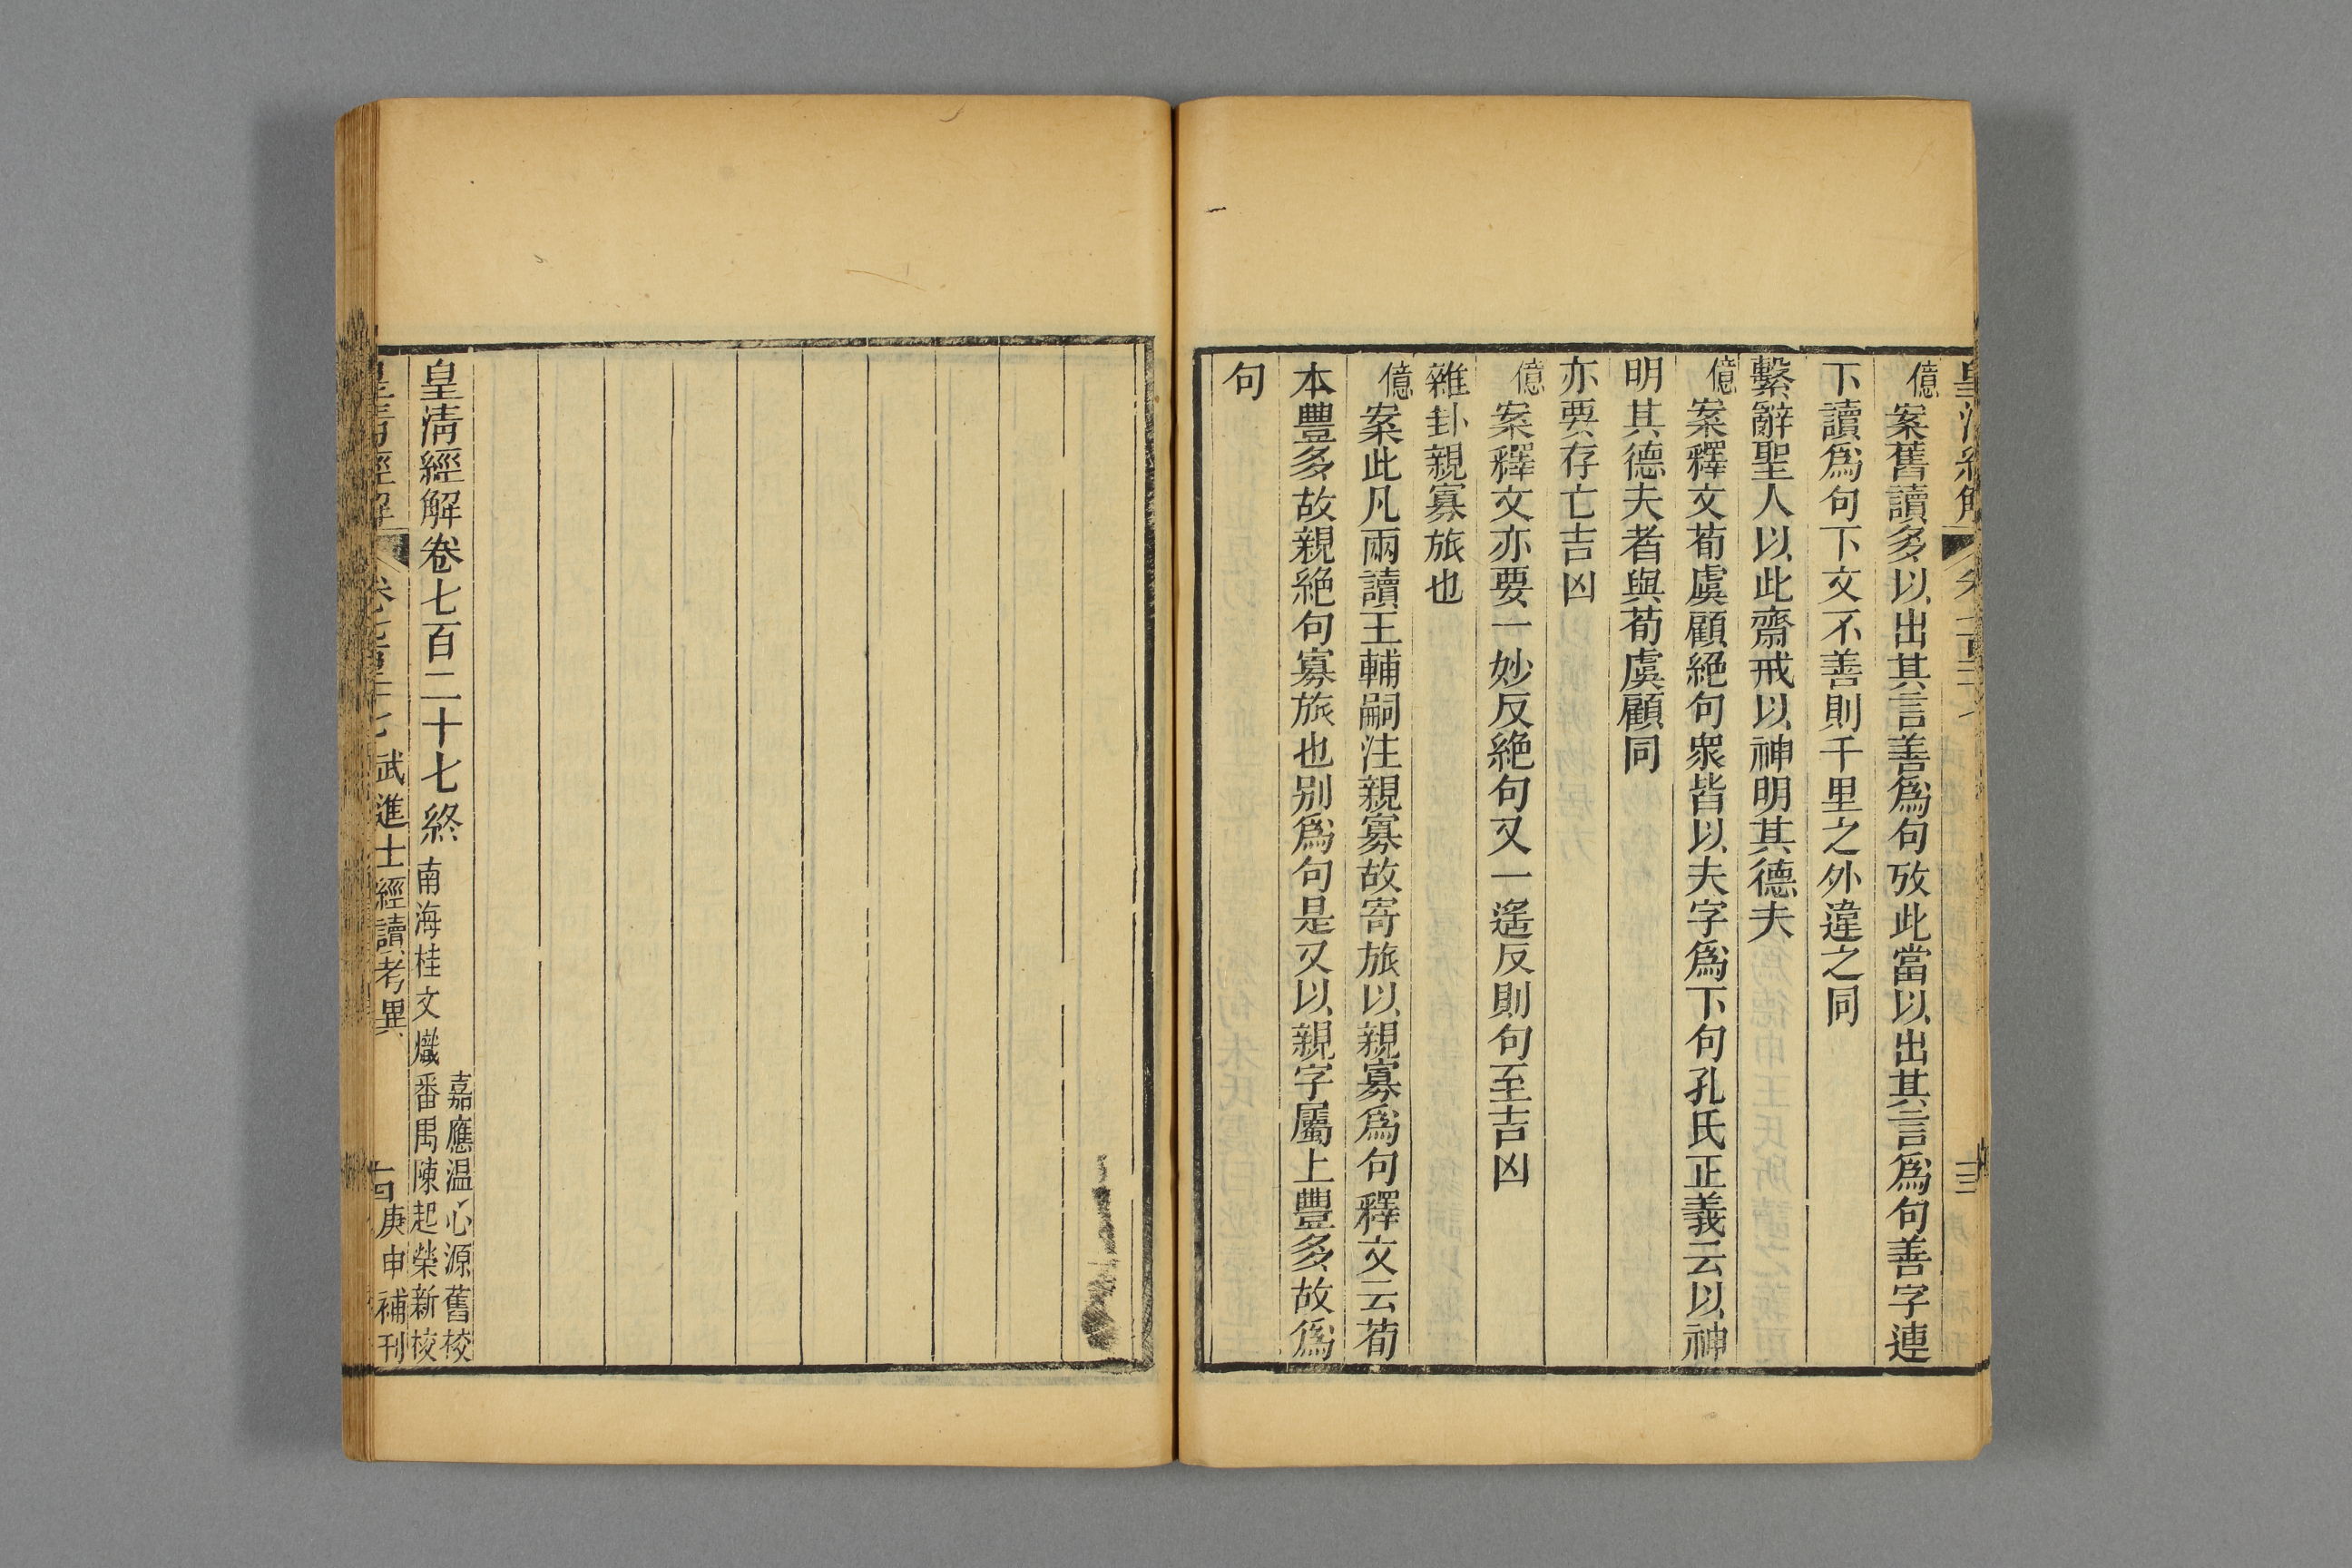 億案舊讀多以出其言善爲句攷此當以出其言爲句善字連
下讀爲句下文不善則千里之外違之同
繫辭聖人以此齋戒以神明其德夫
億案釋文荀虞顧絕句衆皆以夫字爲下句孔氏正義云以神
明其德夫者與荀虞顧同
亦要存亡吉凶
億案釋文亦要一妙反絕句又一遙反則句至吉凶
雜卦親寡旅也
億案此凡兩讀王輔嗣注親寡故寄旅以親寡爲句釋文云荀
本豐多故親絕句寡旅也別爲句是又以親字屬上豐多故爲
句
皇淸經解卷七百二十七終
嘉應温心源舊校
南海桂文熾番禺陳起榮新校
皇淸經解 卷七百二十七 武進士經讀考異 十四 庚申補刊